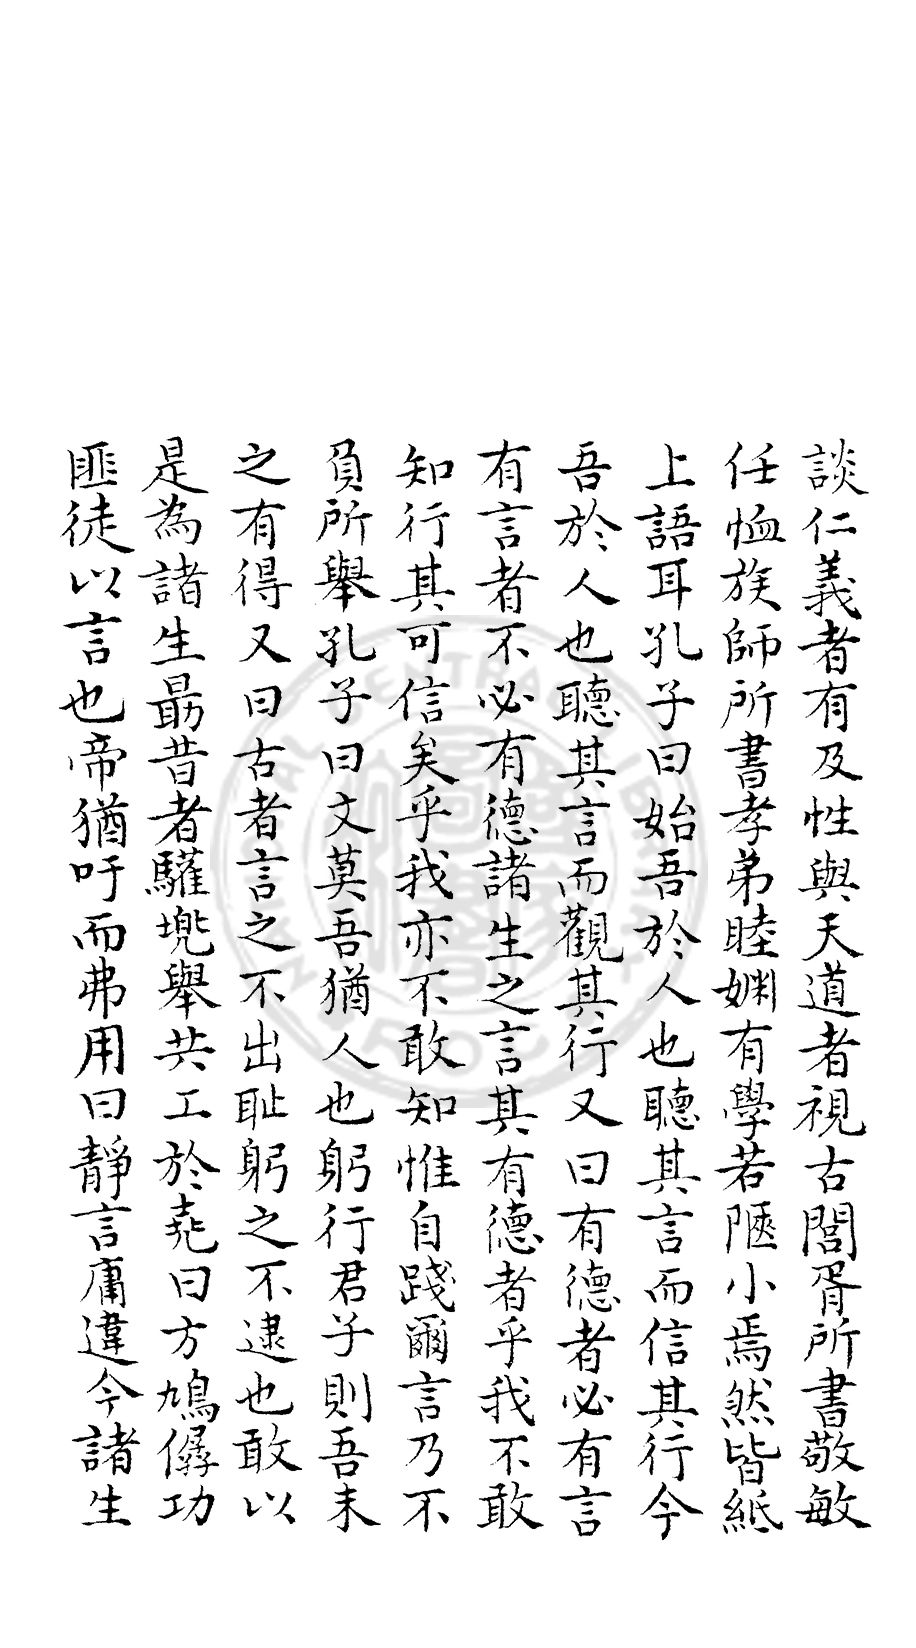 談仁義者有及性與天道者視古閭胥所書敬敏
任恤族師所書孝弟睦婣有學若陋小焉然皆紙
上語耳孔子曰始吾於人也聽其言而信其行今
吾於人也聽其言而觀其行又曰有德者必有言
有言者不必有德諸生之言其有德者乎我不敢
知行其可信矣乎我亦不敢知惟自踐爾言乃不
負所舉孔子曰文莫吾猶人也躬行君子則吾未
之有得又曰古者言之不出耻躬之不逮也敢以
是為諸生勗昔者驩兠舉共工於堯曰方鳩僝功
匪徒以言也帝猶吁而弗用曰靜言庸違今諸生